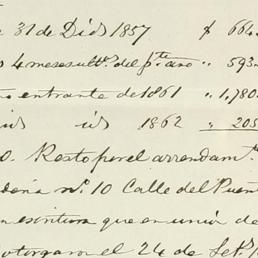 31 de Dic 1857 $ 664
4 meses ult.s del p.te año " 593
entrante de 1861 " 1,780
id 1862 " 205
0. Resto por el arrendam.to
n.o 10 Calle del Puent
escritura que en union de
otorgaron el 24 de Set.e